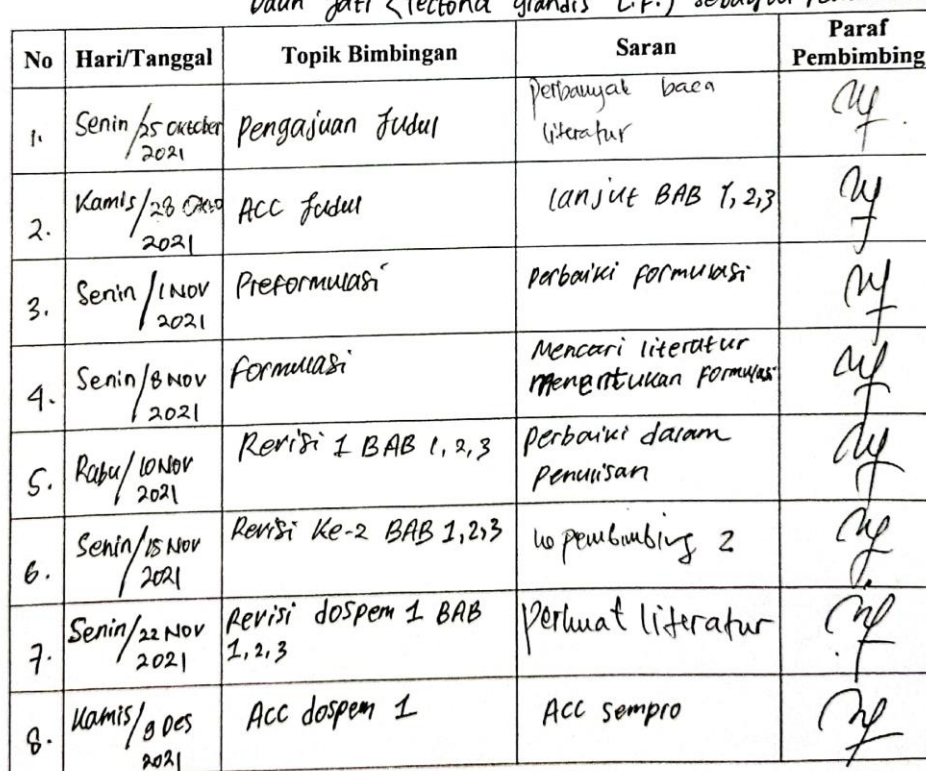 Daun Jati (Tectona grandis L.F.) sebagai
No Hari/Tanggal Topik Bimbingan Saran Paraf Pembimbing
1. Senin/25 oktober 2021 Pengajuan Judul Perbanyak baca literatur
2. Kamis/28 Okto 2021 ACC Judul lanjut BAB 1,2,3
3. Senin/1 Nov 2021 Preformulasi Perbaiki formulasi
4. Senin/8 Nov 2021 formulasi Mencari literatur menentukan formulasi
5. Rabu/10 Nov 2021 Revisi 1 BAB 1,2,3 Perbaiki dalam Penulisan
6. Senin/15 Nov 2021 Revisi Ke-2 BAB 1,2,3 ke pembimbing 2
7. Senin/22 Nov 2021 Revisi dospem 1 BAB 1,2,3 Perkuat literatur
8. Kamis/9 Des 2021 Acc dospem 1 ACC sempro